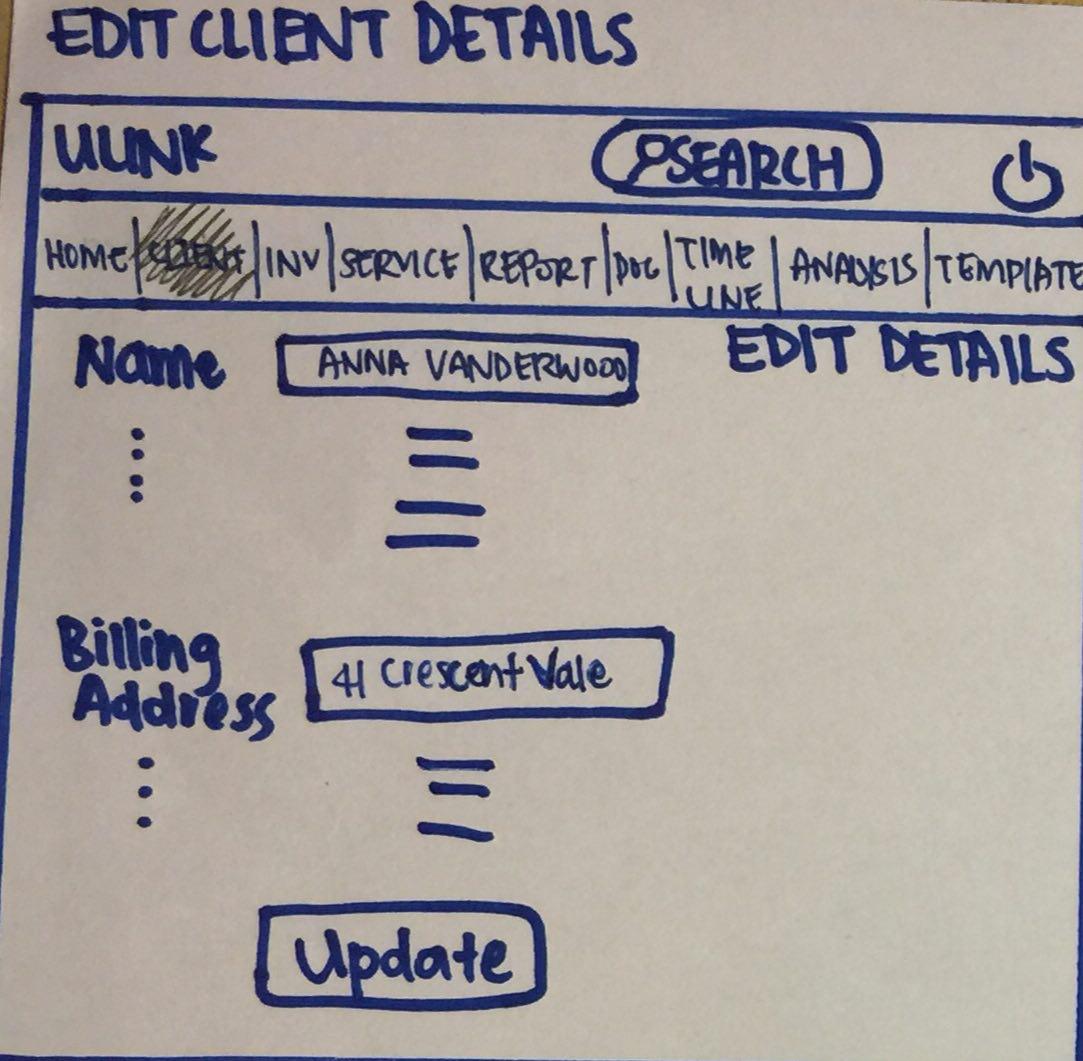 EDIT CLIENT DETAILS
ULINK SEARCH
HOME CLIENT INV SERVICE REPORT DOC TIME LINE ANALYSIS TEMPLATE
Name ANNA VANDERWOOD EDIT DETAILS
Billing
Address 41 Crescent Vale
Update